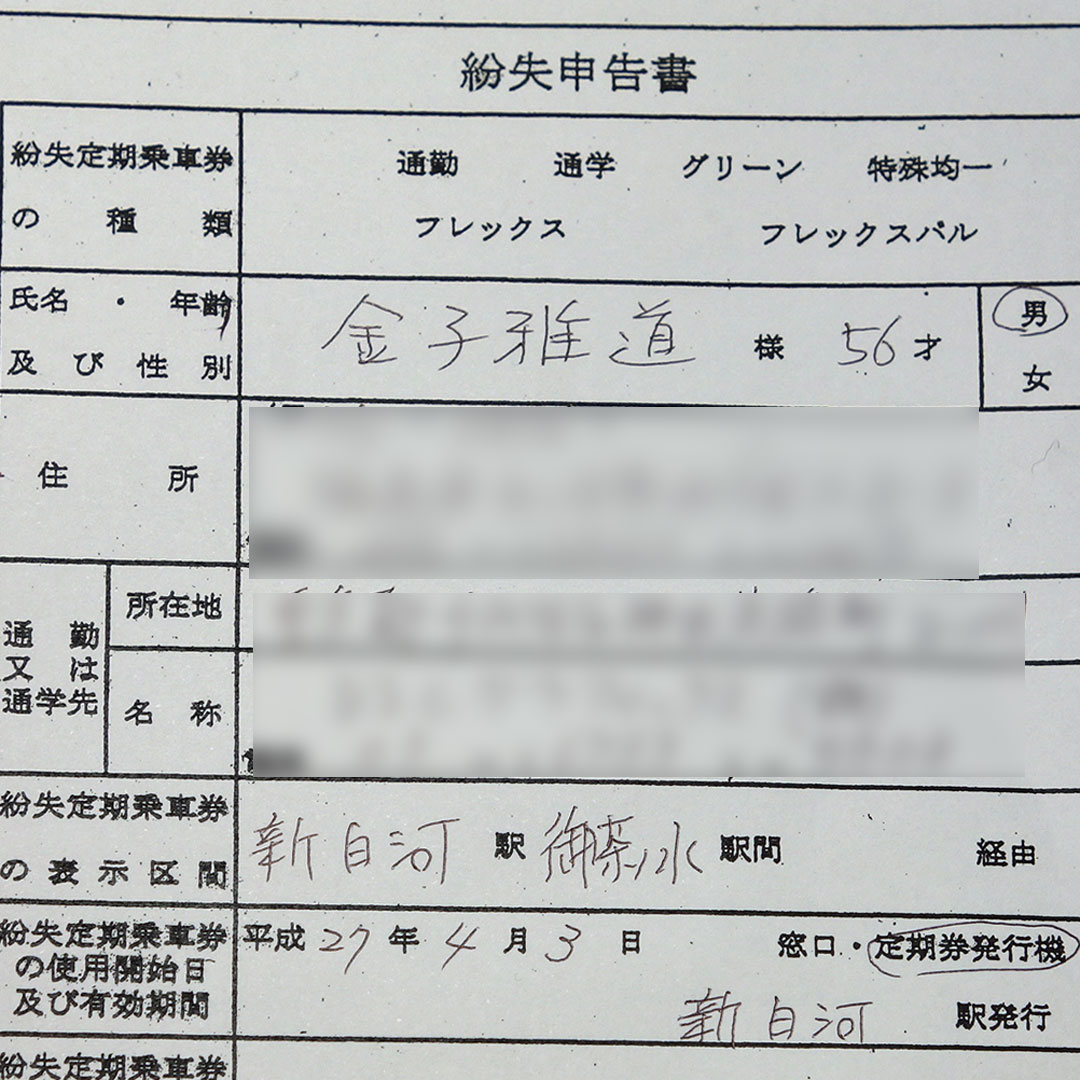 紛失申告書
紛失定期乗車券
の種類
通勤 通学 グリーン 特殊均一
フレックス フレックスパル
氏名・年齢
及び性別
金子雅道 様 56才
男
女
住所
通勤
又は
通学先
所在地
名称
紛失定期乗車券
の表示区間
新白河 駅 御茶ノ水 駅間 経由
紛失定期乗車券
の使用開始日
及び有効期間
平成27年4月3日 窓口・定期券発行機
新白河 駅発行
紛失定期乗車券